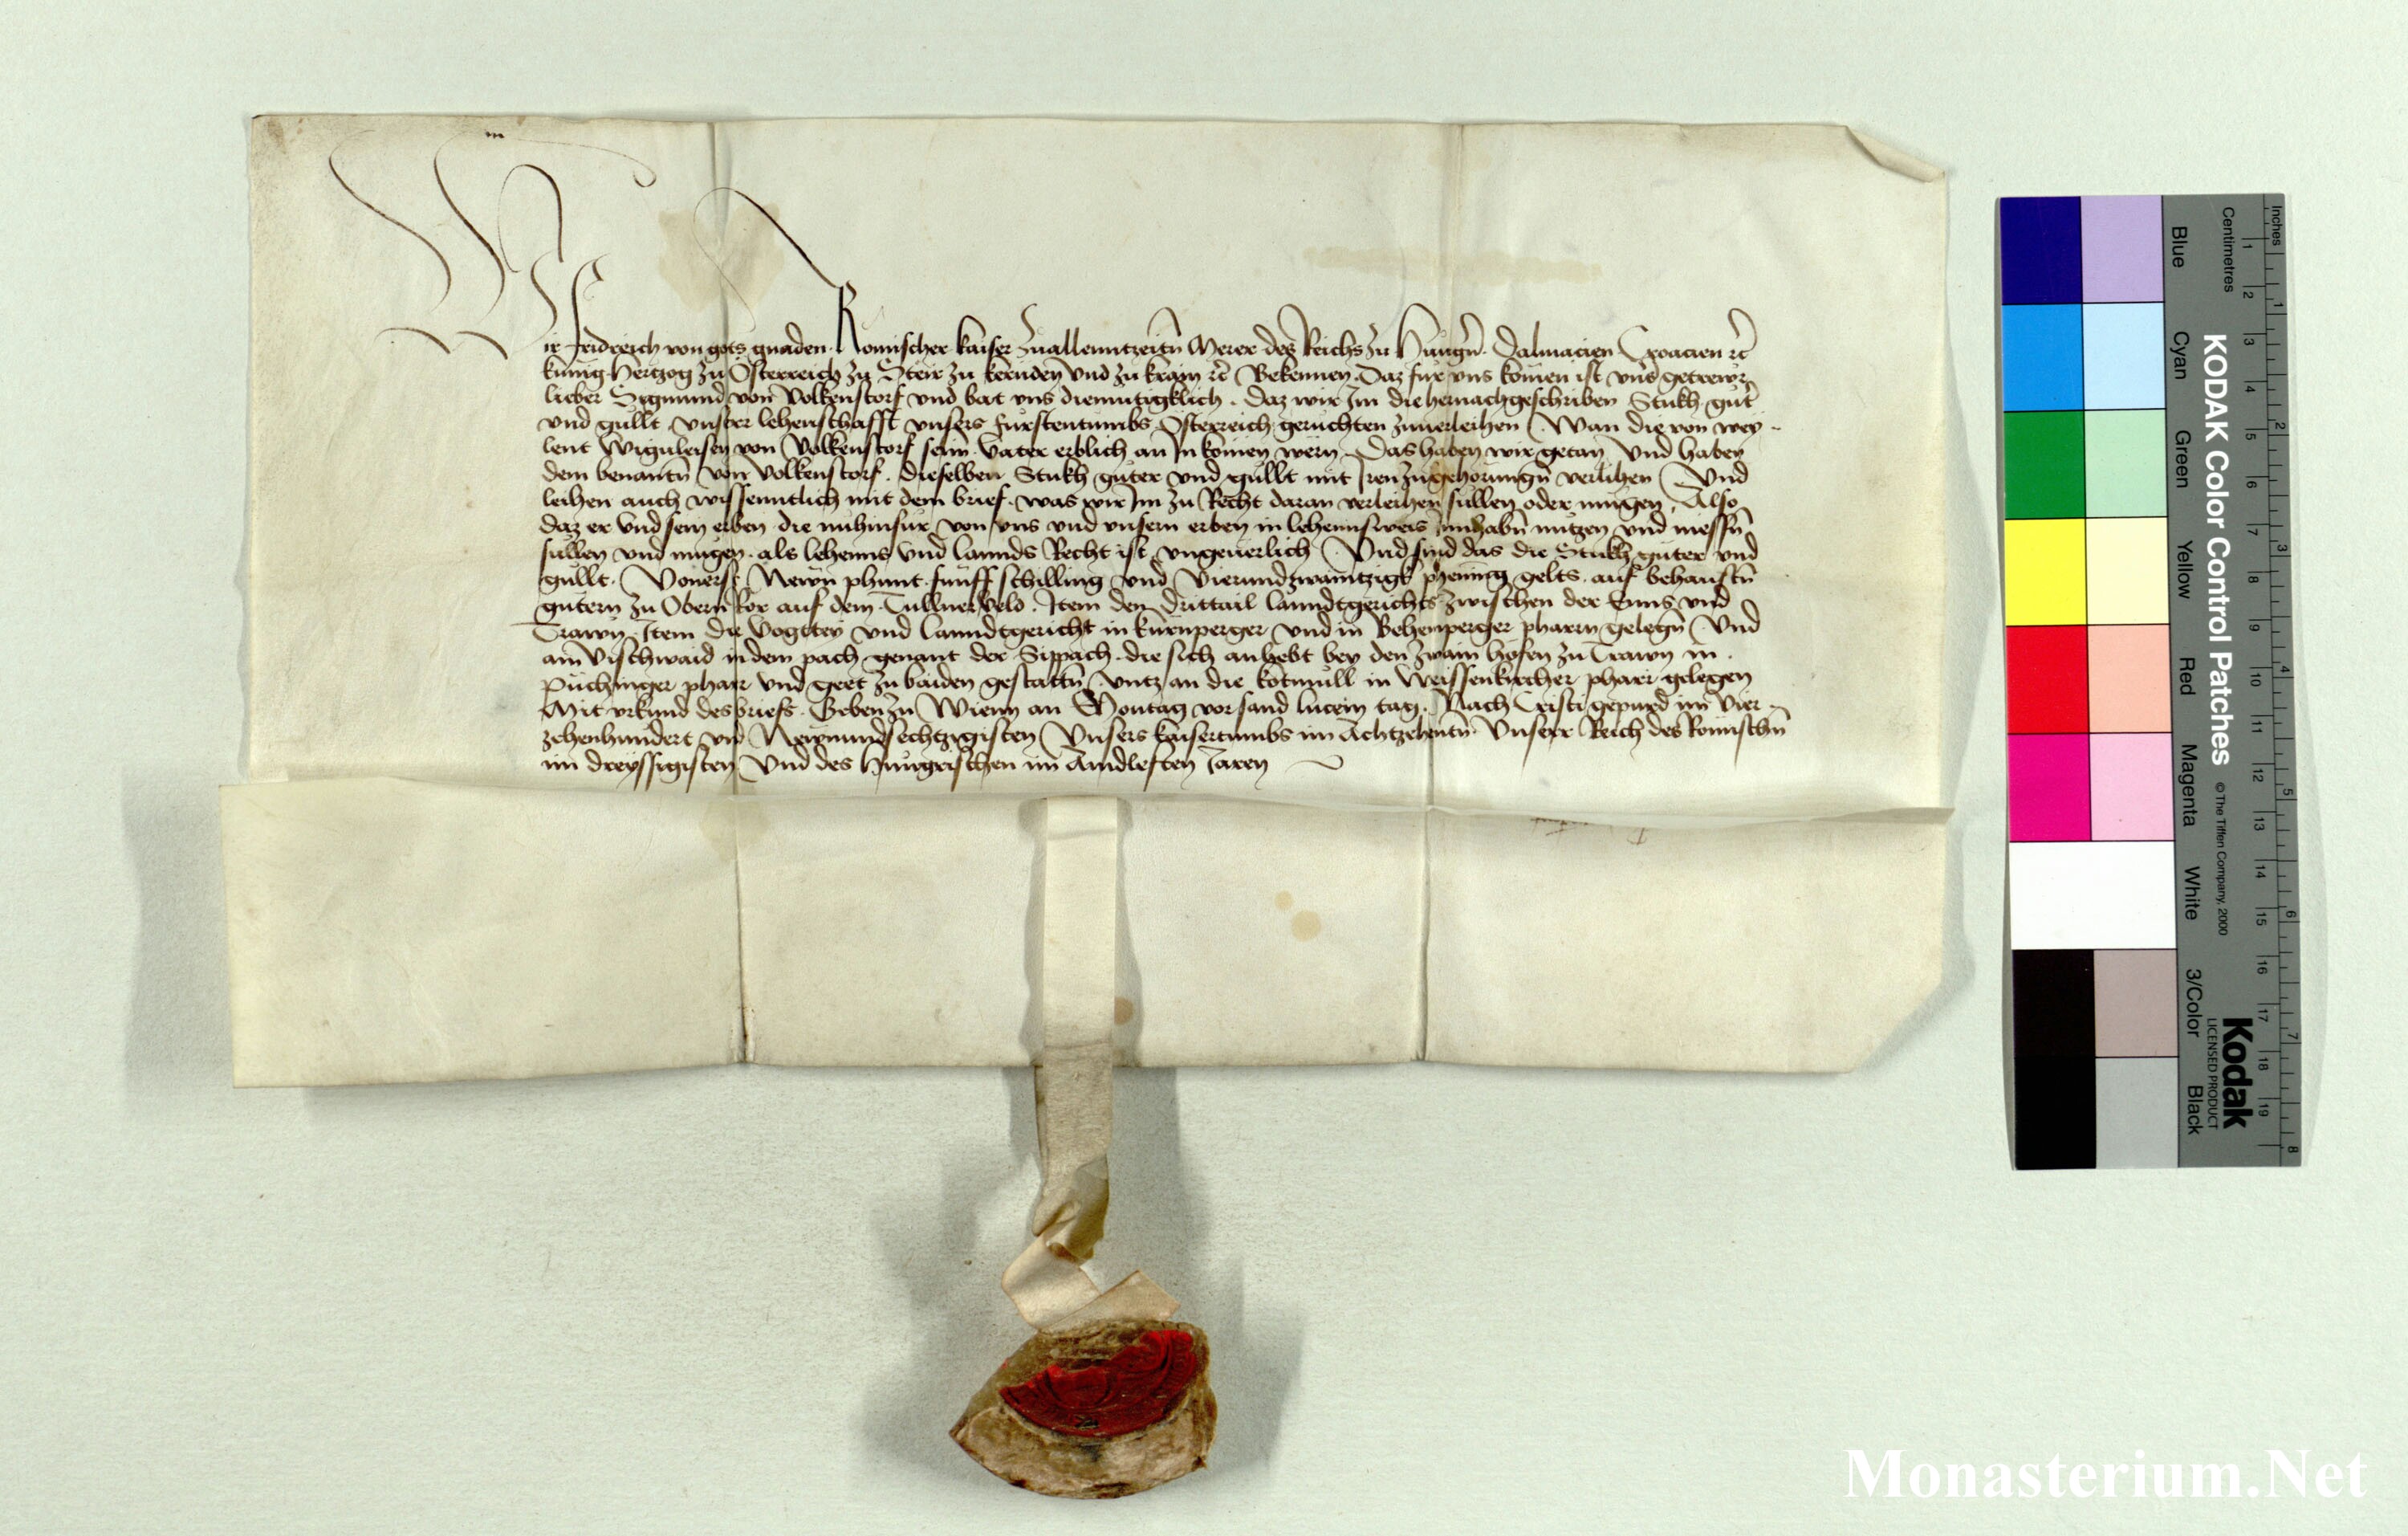 Wir Fridreich von gots gnaden Romischer kaiser zuallenntzeitn̄ Merer des Reichs zu Hungrn̄ Dalmacien Croacien ꝛc̄
kunig Hertzog zu Osterreich zu Steir zu kernden vnd zu krain ꝛc̄ Bekennen. Daz fur vns komen ist vnsˀ getrewr
lieber Sigmund von Volkenstorf vnd bat vns diemutigklich. Daz wir Im die hernachgeschriben Stukh gut̉
vnd gullt vnsrer lehenschafft vnsers furstentumbs Osterreich geruchten zuuerleihen Wan die von wey-
lent Wiguleisen von Volkenstorf seim Vater erblich an In komen wern Das haben wir getan Vnd haben
dem benantn̄ von Volkenstorf. dieselben Stukh guter vnd gullt mit Iren zugehorungn̄ verlihen Vnd
leihen auch wissenntlich mit dem brief. was wir Im zu Recht daran verleihen sullen oder mugen. Also
daz er vnd sein erben die nuhinfur von vns vnd vnsern erben in lehennsweis Innhabn̄ nutzen vnd niessn̄
sullen vnd mugen. als lehenns vnd lannds Recht ist vngeuerlich Vnd sind das die Stukh guter vnd
gullt. Vonerst Newn phunt funff schilling vnd Vierundzwaintzigk phening gelts auf behaustn̄
gutern zu Obern kor auf dem Tullnerveld. Item den drittail lanndtgerichts zwischen der Enns vnd
Trawn Item die Vogttey vnd lanndtgericht in kurnperger vnd in Behenperger pharrn gelegn̄ Vnd
ain Vischwaid in dem pach genant der Sippach. die sich anhebt bey den zwain hofen zu Trawn in
Puchinger pharr vnd geet zu baiden gestattn̄ vntz an die kotmull in Weissenkircher pharr gelegen
Mit vrkund des briefs. Geben zu Wienn an Montag vor sand lucein tag. Nach Cristi gepurd im Vier-
zehenhundert vnd Newnundsechtzigisten Vnsers kaisertumbs im Achtzehentn̄ Vnserr Reich des Romischn̄
im dreyssigisten Vnd des Hungrischen im Aindleften Jaren
Inches
Centimetres
1 2 3 4 5 6 7 8 9 10 11 12 13 14 15 16 17 18 19
1 2 3 4 5 6 7 8
Blue Cyan Green Yellow Red Magenta White 3/Color Black
KODAK Color Control Patches
© The Tiffen Company, 2000
Kodak
LICENSED PRODUCT
Monasterium.Net